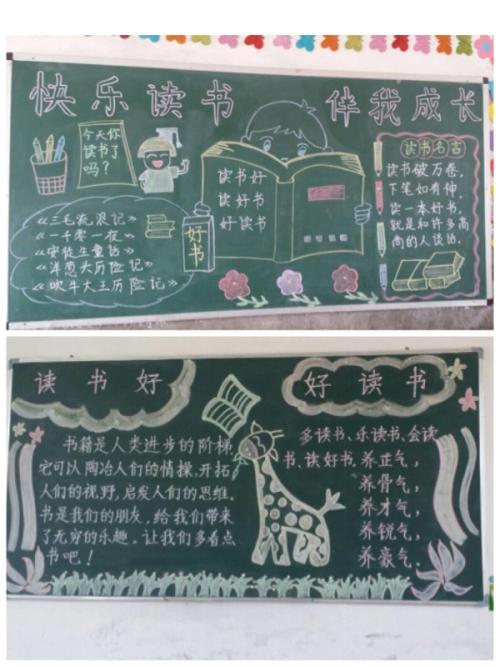 快乐读书 伴我成长
今天你
读书了
吗?
读书好
读好书
好读书
好书
《三毛流浪记》
《一千零一夜》
《安徒生童话》
《洋葱头历险记》
《吹牛大王历险记》
读书名言
读书破万卷,
下笔如有神,
读一本好书,
就是和许多高
尚的人谈话。
读书好
书籍是人类进步的阶梯
它可以陶冶人们的情操,开拓
人们的视野,启发人们的思维。
书是我们的朋友,给我们带来
了无穷的乐趣。让我们多看点
书吧!
好读书
多读书、乐读书、会读
书、读好书。养正气,
养骨气,
养才气,
养锐气,
养豪气。